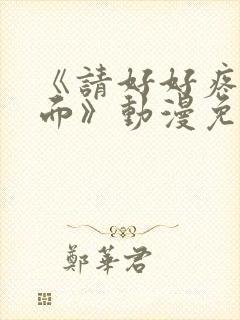 《請好好疼
而》動漫免
鄭華君